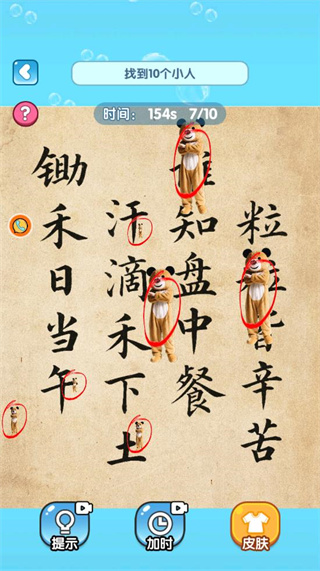 找到10个小人
?
时间: 154s 7/10
锄禾日当午
汗滴禾下土
知盘中餐
粒辛苦
提示
加时
皮肤